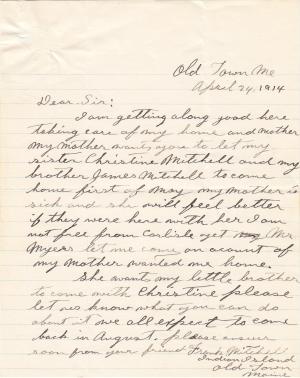 Old Town Me
April 24, 1914
Dear Sir:
I am getting along good here
taking care of my home and mother
my mother wants you to let my
sister Christine Mitchell and my
brother James Mitchell to come
home first of May my mother is
sick and she will feel better
if they were here with her I am
not free from Carlisle yet Mr
Myers let me come on acount of
my mother wanted me home.
She wants my little brother
to come with Christine please
let us know what you can do
about it we all expect to come
back in August. please answer
soon from your friend Frank Mitchell
Indian Island
Old Town
Maine